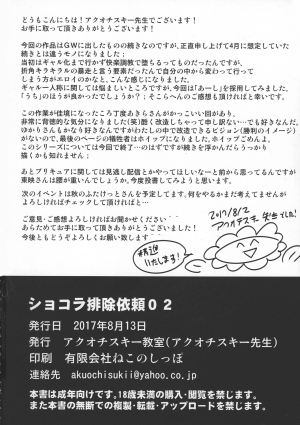 どうもこんにちは！アクオチスキー先生でございます！
お手に取って頂きありがとうございます！
今回の作品はGWに出したものの続きなのですが、正直申し上げて4月に想定していた
続きとは違うモノになりました；
当初はギャル化まで行かず快楽調教で堕ちるってものだったんですが、
折角キラキラルの暴走と言う要素だったんで自分の中から変わって行って
しまう方がエロイのかなと、こんな感じになりました。
ギャル一人称に関しては悩ましいところですが、今回は「あーし」を採用してみました。
「うち」のほうが良かったでしょうか？；そこらへんのご感想も頂ければと幸いです。
この作業が佳境になったころ丁度あきらさんがかっこいい回があり、
非常に背徳的な気分になりました(笑)酷く改造しちゃって申し訳ない…でも好きなんだ；
ゆかりさんもかなり好きなんですがわたしの中で改造できるビジョン(勝利のイメージ)
がないので、最後のページの犠牲者はホイップになりました。ホイップごめん。
このシリーズについては今回で終了…のはずですが続きを浮かんだらうっかり
描くかも知れません；
あとプリキュアに関しては見逃し配信とかやってほしいなーと前から思ってるんですが
東映さんは腰が重いんでしょうか、今度投書してみようと思います。
次のイベントは秋のふたけっとさんを予定してます。何をやるかまだ考えてませんが
よろしければチェックして頂ければと…
ご意見・ご感想よろしければお聞かせください
あらためてお手に取って頂きありがとうございました！
今後ともどうぞよろしくお願い致します
2017/8/2
アクオチスキー先生でした！
精進
いたします！
ショコラ排除依頼０２
発行日　2017年8月13日
発行　アクオチスキー教室(アクオチスキー先生)
印刷　有限会社ねこのしっぽ
連絡先　akuochisukii@yahoo.co.jp
本書は成年向けです。18歳未満の購入・閲覧を禁じます。
また本書の無断での複製・転載・アップロードを禁じます。